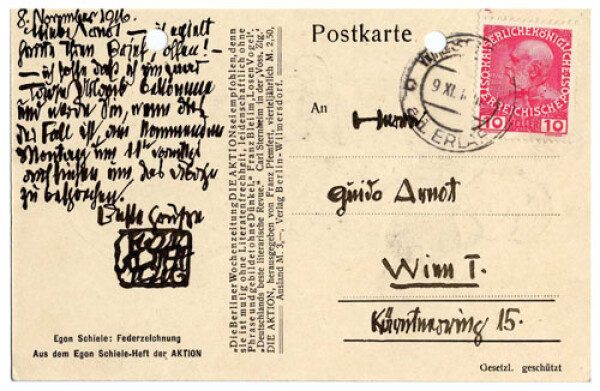 8. November 1916.
Lieber Arnot – 
Ihren Brief, 
– ich hoffe daß ich ein paar
Tage Urlaub bekomme
und werde Sie, wenn dies
der Fall ist, am kommenden
Montag um 11h vormittag
aufsuchen um das übrige
zu besprechen.
Beste Grüße
EGON
SCHIELE
Egon Schiele: Federzeichnung
Aus dem Egon Schiele-Heft der AKTION
»Die Berliner Wochenzeitung DIE AKTION sei empfohlen, denn
sie ist mutig ohne Literatenfrechheit, leidenschaftlich ohne
Phrase und gebildet ohne Dünkel.« Franz Blei im »Losen Vogel«.
»Deutschlands beste literarische Revue.« Carl Sternheim in der »Voss. Ztg.«
DIE AKTION, herausgegeben von Franz Pfemfert, vierteljährlich M. 2,50,
Ausland M. 3,—, Verlag Berlin-Wilmersdorf.
Postkarte
KAISERLICHE KÖNIGLICHE
ÖSTERREICHISCHE POST
10 10
9 XI
ERLA
An
Herrn
Guido Arnot
Wien I.
Kärntnerring 15.
Gesetzl. geschützt